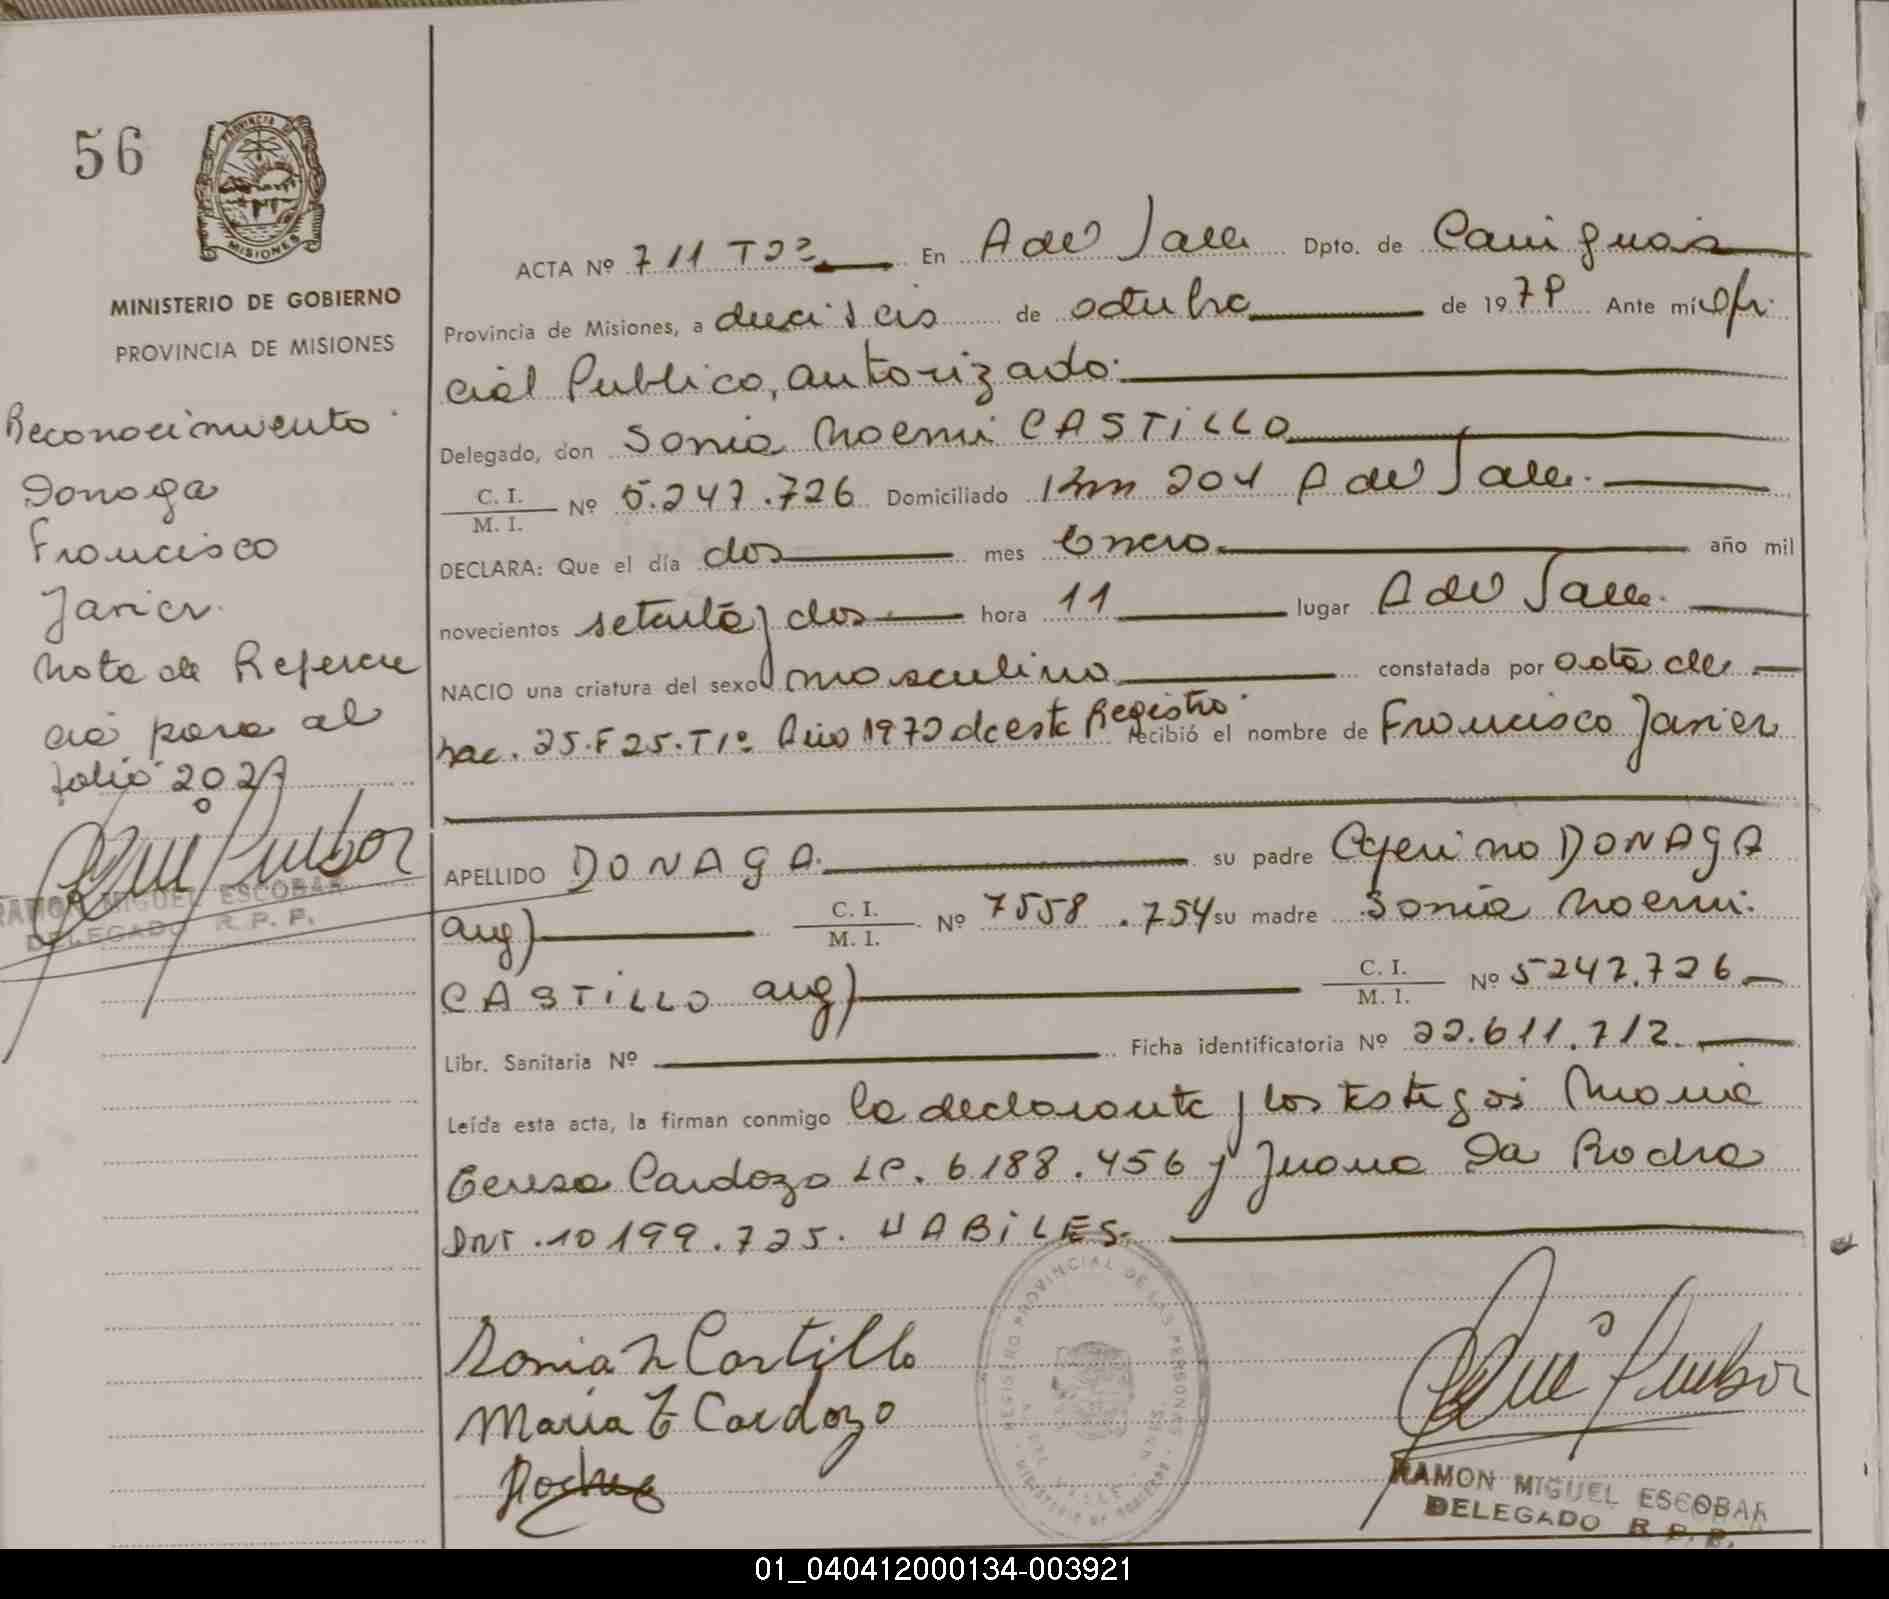 56
PROVINCIA DE
MISIONES
MINISTERIO DE GOBIERNO
PROVINCIA DE MISIONES
Reconocimiento
Donaga
Francisco
Javier.
Nota de Referen
cia para al
folio 202
RAMON MIGUEL ESCOBAR
DELEGADO R. P. P.
ACTA Nº 711 T2º En A del Valle Dpto. de Cainguas
Provincia de Misiones, a dieciseis de octubre de 19 Ante mí Ofi
cial Publico, autorizado:
Delegado, don Sonia Noemi CASTiLLO
C. I.
M. I. Nº 5.247.726 Domiciliado Km 204 A del Valle.
DECLARA: Que el día dos mes Enero año mil
novecientos setenta y dos hora 11 lugar A del Valle.
NACIO una criatura del sexo masculino constatada por acta de
Nac. 25.F25.T1º Año 1972 de este Registro recibió el nombre de Francisco Javier
APELLIDO DONAGA. su padre DONAGA
arg) C. I.
M. I. Nº 7558.754 su madre Sonia Noemi
CASTiLLO arg) C. I.
M. I. Nº 5247.726
Libr. Sanitaria Nº Ficha identificatoria Nº 22.611.712.
Leída esta acta, la firman conmigo la declarante y los testigos Maria
Teresa Cardozo LC. 6188.456 y Juana Da Rocha
DNI.10199.725. HABiLES.
Sonia N Castillo
Maria T Cardozo
Rocha
REGISTRO PROVINCIAL DE LAS PERSONAS
MINISTERIO DE GOBIERNO
RAMON MIGUEL ESCOBAR
DELEGADO R. P. P.
01_040412000134-003921